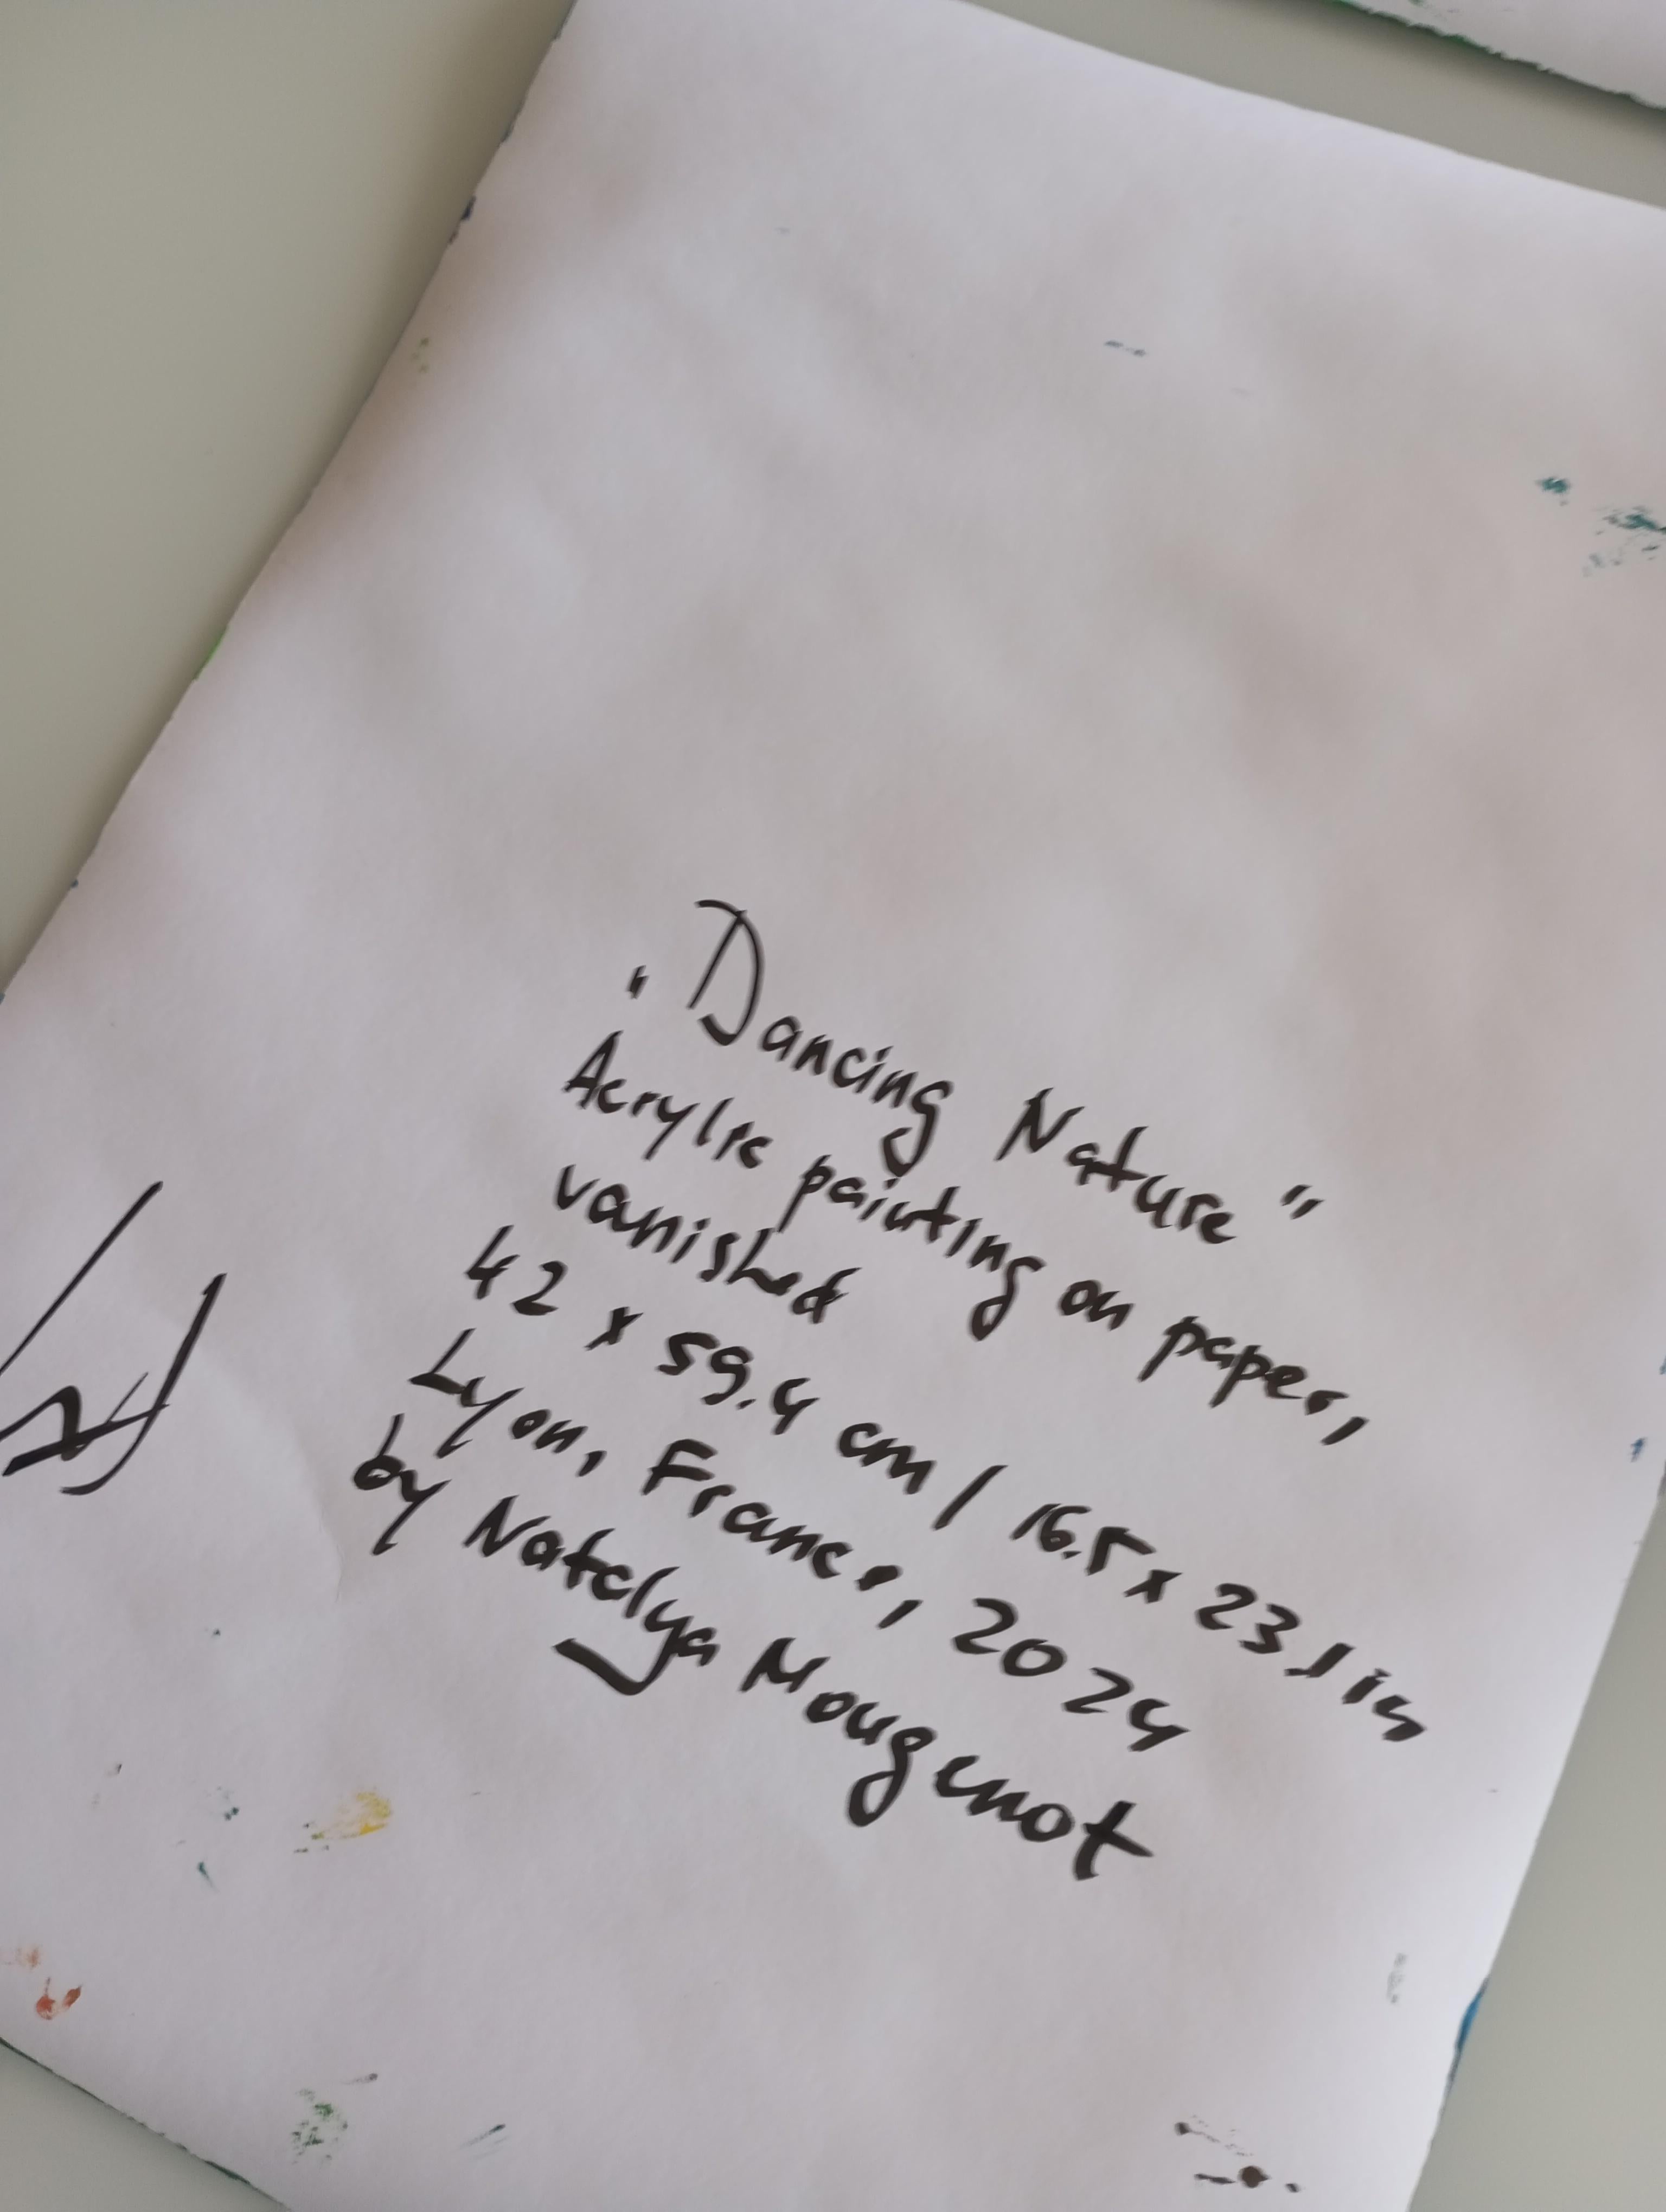 "Dancing Nature"
Acrylic painting on paper,
vanished
42 x 59.4 cm / 16.5 x 23.1 in
Lyon, France, 2024
by Natalya Mougenot